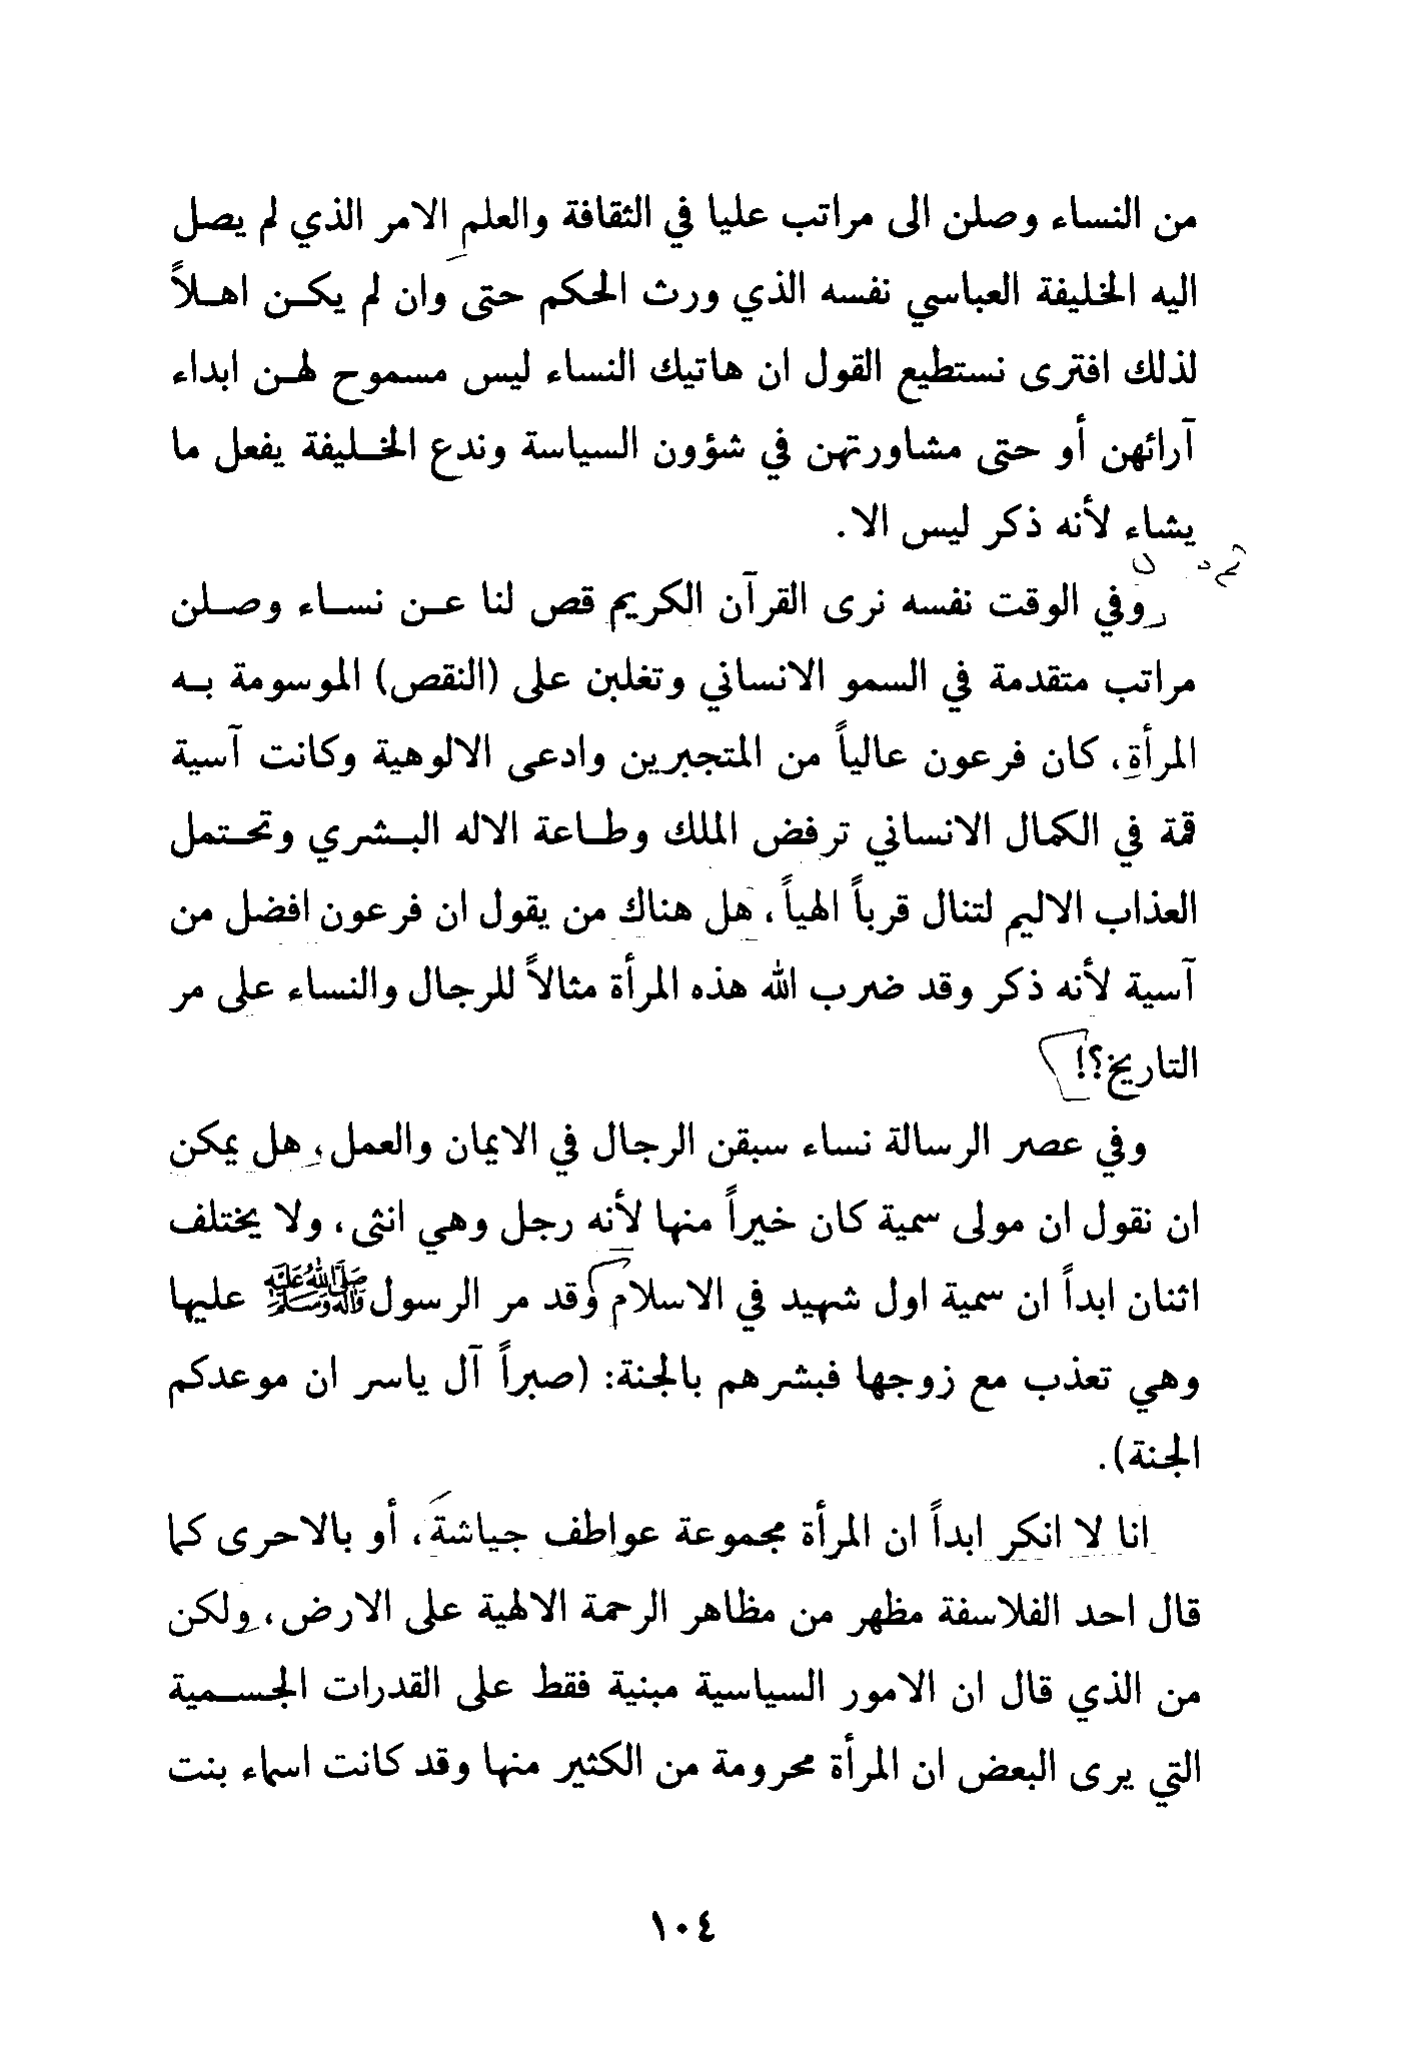 من النساء وصلن الى مراتب عليا في الثقافة والعلم الامر الذي لم يصل
اليه الخليفة العباسي نفسه الذي ورث الحكم حتى وان لم يكن اهلاً
لذلك افترى نستطيع القول ان هاتيك النساء ليس مسموح لهن ابداء
آرائهن أو حتى مشاورتهن في شؤون السياسة وندع الخليفة يفعل ما
يشاء لأنه ذكر ليس الا.
وفي الوقت نفسه نرى القرآن الكريم قص لنا عن نساء وصلن
مراتب متقدمة في السمو الانساني وتغلبن على (النقص) الموسومة به
المرأة، كان فرعون عالياً من المتجبرين وادعى الالوهية وكانت آسية
قمة في الكمال الانساني ترفض الملك وطاعة الاله البشري وتحتمل
العذاب الاليم لتنال قرباً الهياً، هل هناك من يقول ان فرعون افضل من
آسية لأنه ذكر وقد ضرب الله هذه المرأة مثالاً للرجال والنساء على مر
التاريخ؟!
وفي عصر الرسالة نساء سبقن الرجال في الايمان والعمل، هل يمكن
ان نقول ان مولى سمية كان خيراً منها لأنه رجل وهي انثى، ولا يختلف
اثنان ابداً ان سمية اول شهيد في الاسلام وقد مر الرسول صَلَّى اللهُ عَلَيْهِ وَآلِهِ وَسَلَّمَ عليها
وهي تعذب مع زوجها فبشرهم بالجنة: (صبراً آل ياسر ان موعدكم
الجنة).
انا لا انكر ابداً ان المرأة مجموعة عواطف جياشة، أو بالاحرى كما
قال احد الفلاسفة مظهر من مظاهر الرحمة الالهية على الارض، ولكن
من الذي قال ان الامور السياسية مبنية فقط على القدرات الجسمية
التي يرى البعض ان المرأة محرومة من الكثير منها وقد كانت اسماء بنت
١٠٤